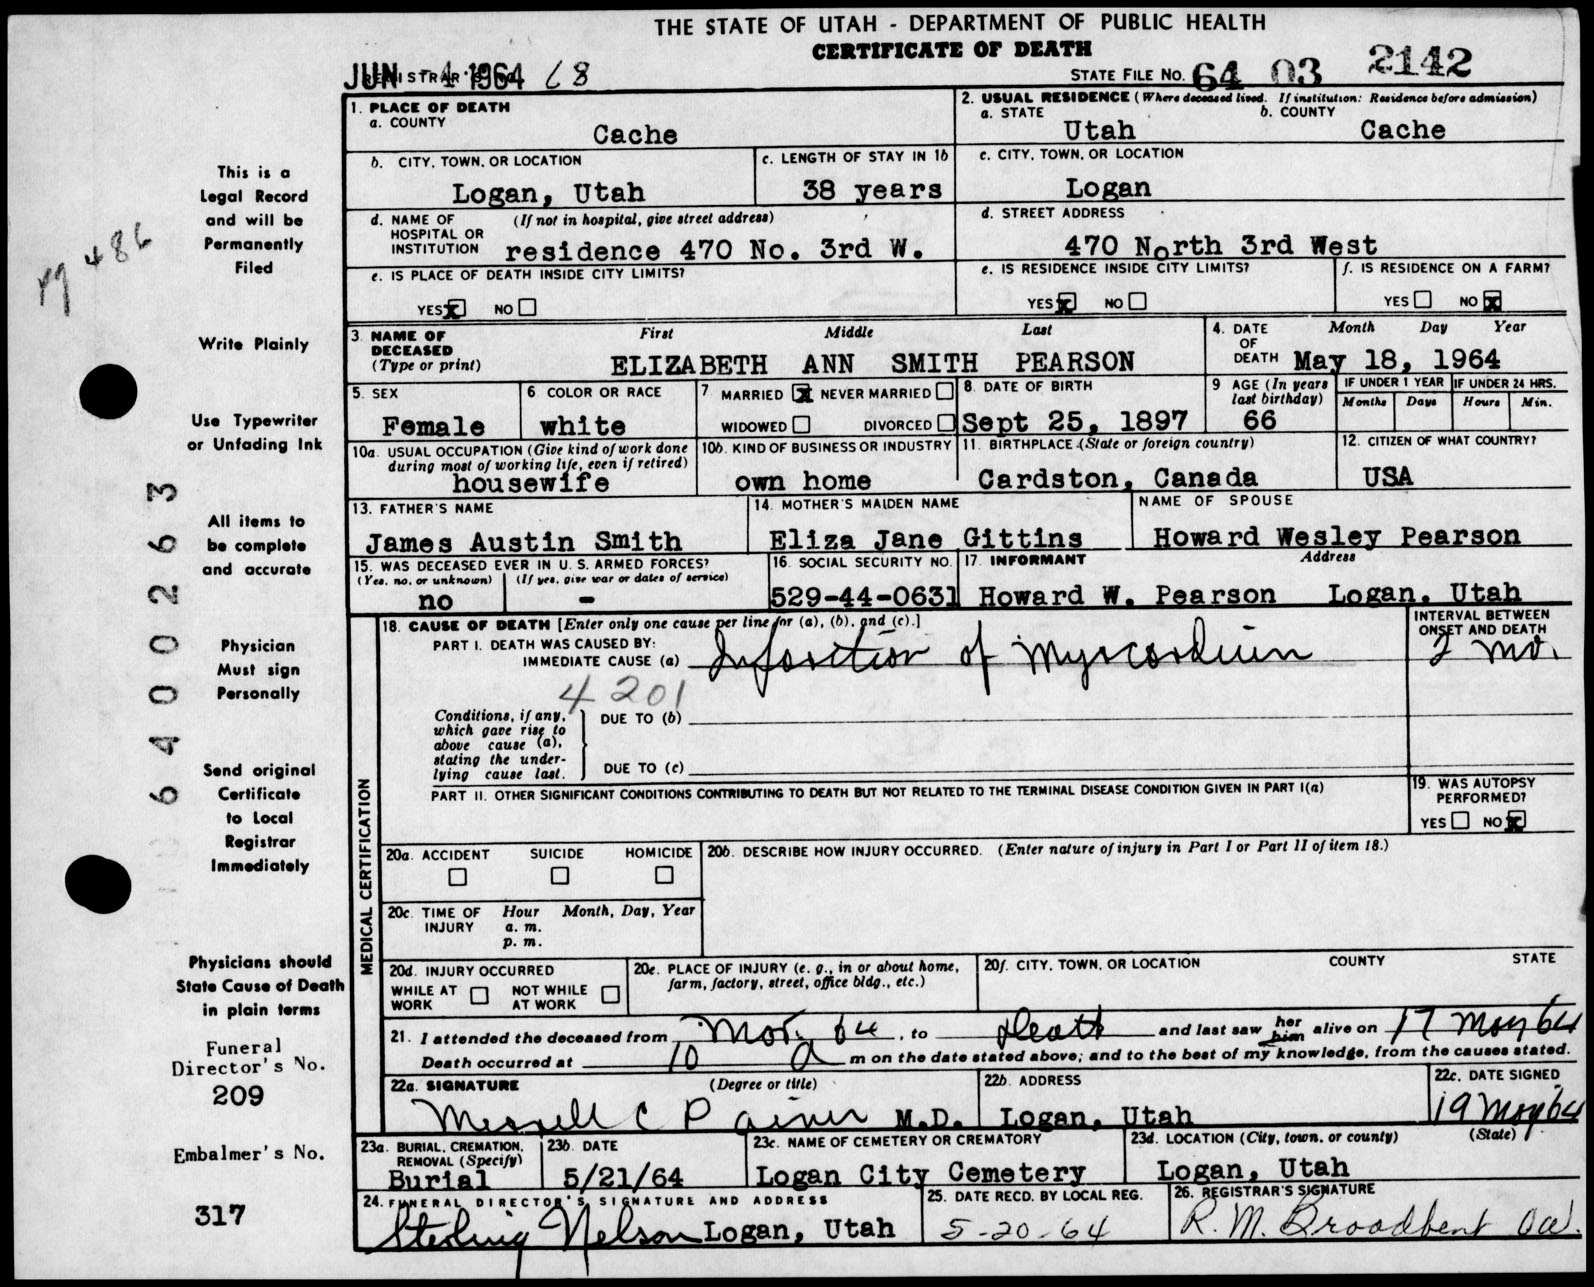 THE STATE OF UTAH - DEPARTMENT OF PUBLIC HEALTH
CERTIFICATE OF DEATH
JUN - 4 1964 68
STATE FILE NO. 64 03 2142
1. PLACE OF DEATH
a. COUNTY
Cache
2. USUAL RESIDENCE (Where deceased lived. If institution: Residence before admission)
a. STATE b. COUNTY
Utah Cache
b. CITY, TOWN, OR LOCATION
Logan, Utah
c. LENGTH OF STAY IN 1b
38 years
c. CITY, TOWN, OR LOCATION
Logan
d. NAME OF HOSPITAL OR INSTITUTION (If not in hospital, give street address)
residence 470 No. 3rd W.
d. STREET ADDRESS
470 North 3rd West
e. IS PLACE OF DEATH INSIDE CITY LIMITS?
YES x NO
e. IS RESIDENCE INSIDE CITY LIMITS?
YES x NO
f. IS RESIDENCE ON A FARM?
YES NO x
3. NAME OF DECEASED (Type or print)
First Middle Last
ELIZABETH ANN SMITH PEARSON
4. DATE OF DEATH Month Day Year
May 18, 1964
5. SEX
Female
6 COLOR OR RACE
white
7 MARRIED x NEVER MARRIED
WIDOWED DIVORCED
8. DATE OF BIRTH
Sept 25, 1897
9 AGE (In years last birthday)
66
IF UNDER 1 YEAR IF UNDER 24 HRS.
Months Days Hours Min.
10a. USUAL OCCUPATION (Give kind of work done during most of working life, even if retired)
housewife
10b. KIND OF BUSINESS OR INDUSTRY
own home
11. BIRTHPLACE (State or foreign country)
Cardston, Canada
12. CITIZEN OF WHAT COUNTRY?
USA
13. FATHER'S NAME
James Austin Smith
14. MOTHER'S MAIDEN NAME
Eliza Jane Gittins
NAME OF SPOUSE
Howard Wesley Pearson
15. WAS DECEASED EVER IN U. S. ARMED FORCES?
(Yes, no, or unknown) (If yes, give war or dates of service)
no -
16. SOCIAL SECURITY NO.
529-44-0631
17. INFORMANT Address
Howard W. Pearson Logan, Utah
18. CAUSE OF DEATH [Enter only one cause per line for (a), (b), and (c).]
PART I. DEATH WAS CAUSED BY:
IMMEDIATE CAUSE (a) Infarction of Myocardium
INTERVAL BETWEEN ONSET AND DEATH
2 mo.
4201
Conditions, if any, which gave rise to above cause (a), stating the underlying cause last.
DUE TO (b)
DUE TO (c)
PART II. OTHER SIGNIFICANT CONDITIONS CONTRIBUTING TO DEATH BUT NOT RELATED TO THE TERMINAL DISEASE CONDITION GIVEN IN PART I(a)
19. WAS AUTOPSY PERFORMED?
YES NO x
MEDICAL CERTIFICATION
20a. ACCIDENT SUICIDE HOMICIDE
20b. DESCRIBE HOW INJURY OCCURRED. (Enter nature of injury in Part I or Part II of item 18.)
20c. TIME OF INJURY Hour Month, Day, Year
a. m.
p. m.
20d. INJURY OCCURRED
WHILE AT WORK NOT WHILE AT WORK
20e. PLACE OF INJURY (e. g., in or about home, farm, factory, street, office bldg., etc.)
20f. CITY, TOWN, OR LOCATION COUNTY STATE
21. I attended the deceased from Mar. 64, to Death and last saw her him alive on 17 May 64
Death occurred at 10 a m on the date stated above; and to the best of my knowledge, from the causes stated.
22a. SIGNATURE (Degree or title)
Merrell C M.D.
22b. ADDRESS
Logan, Utah
22c. DATE SIGNED
19 May 64
23a. BURIAL, CREMATION, REMOVAL (Specify)
Burial
23b. DATE
5/21/64
23c. NAME OF CEMETERY OR CREMATORY
Logan City Cemetery
23d. LOCATION (City, town, or county) (State)
Logan, Utah
24. FUNERAL DIRECTOR'S SIGNATURE AND ADDRESS
Sterling Nelson Logan, Utah
25. DATE RECD. BY LOCAL REG.
5-20-64
26. REGISTRAR'S SIGNATURE
R. M. Broadbent
This is a
Legal Record
and will be
Permanently
Filed
pg 486
Write Plainly
Use Typewriter
or Unfading Ink
All items to
be complete
and accurate
Physician
Must sign
Personally
Send original
Certificate
to Local
Registrar
Immediately
64000263
Physicians should
State Cause of Death
in plain terms
Funeral
Director's No.
209
Embalmer's No.
317